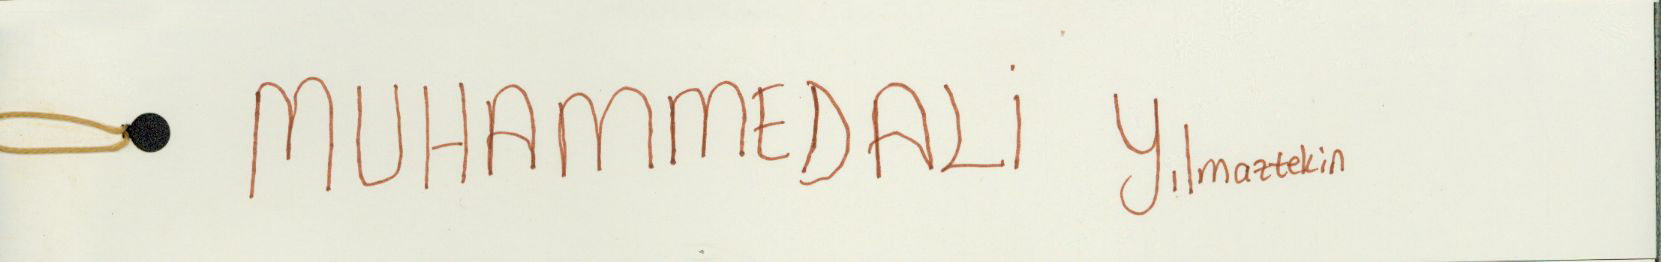 MUHAMMEDALİ Yılmaztekin